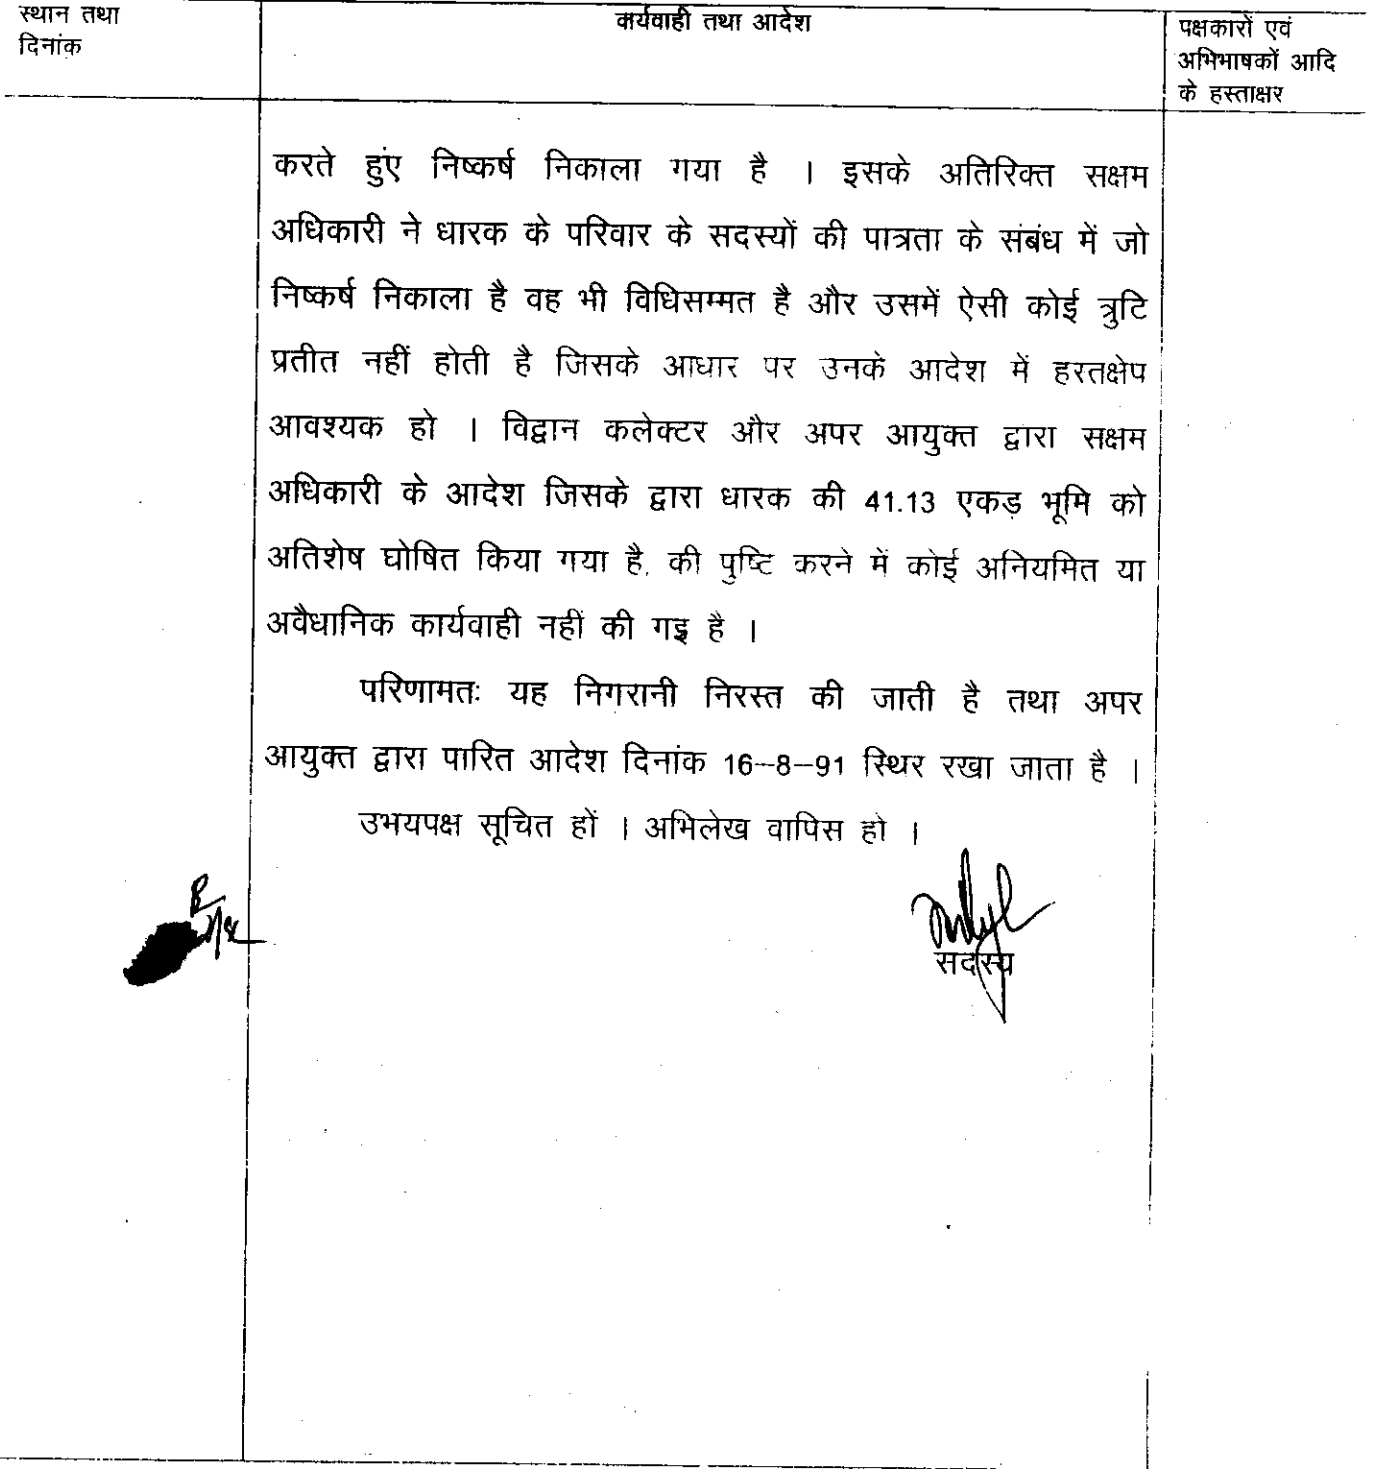 स्थान तथा
दिनांक
कार्यवाही तथा आदेश
पक्षकारों एवं
अभिभाषकों आदि
के हस्ताक्षर
करते हुंए निष्कर्ष निकाला गया है । इसके अतिरिक्त सक्षम
अधिकारी ने धारक के परिवार के सदस्यों की पात्रता के संबंध में जो
निष्कर्ष निकाला है वह भी विधिसम्मत है और उसमें ऐसी कोई त्रुटि
प्रतीत नहीं होती है जिसके आधार पर उनके आदेश में हस्तक्षेप
आवश्यक हो । विद्वान कलेक्टर और अपर आयुक्त द्वारा सक्षम
अधिकारी के आदेश जिसके द्वारा धारक की 41.13 एकड़ भूमि को
अतिशेष घोषित किया गया है, की पुष्टि करने में कोई अनियमित या
अवैधानिक कार्यवाही नहीं की गइ है ।
परिणामतः यह निगरानी निरस्त की जाती है तथा अपर
आयुक्त द्वारा पारित आदेश दिनांक 16–8–91 स्थिर रखा जाता है ।
उभयपक्ष सूचित हों । अभिलेख वापिस हो ।
सदस्य